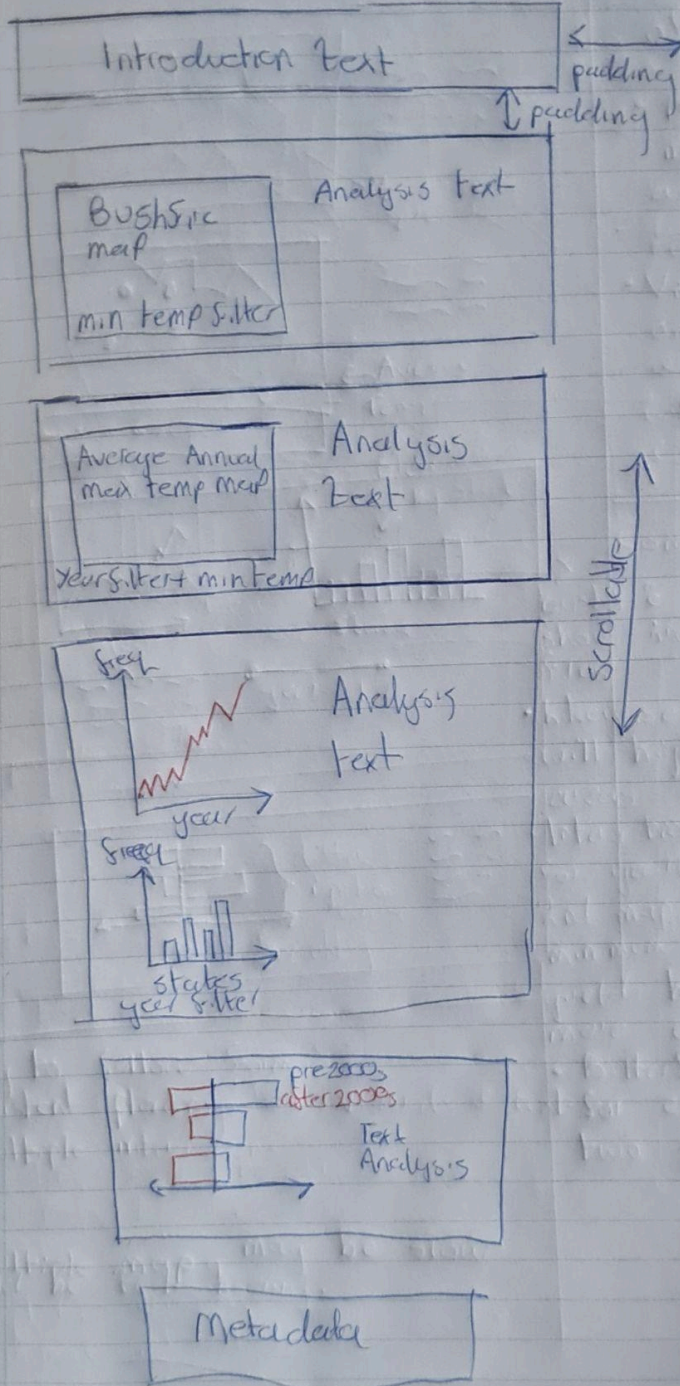 Introduction text
padding
padding
Bushfire
map
min temp filter
Analysis text
Average Annual
max temp map
year filter + min temp
Analysis
text
Scrollable
freq
year
Analysis
text
freq
states
year filter
pre2000s
after2000s
Text
Analysis
Metadata